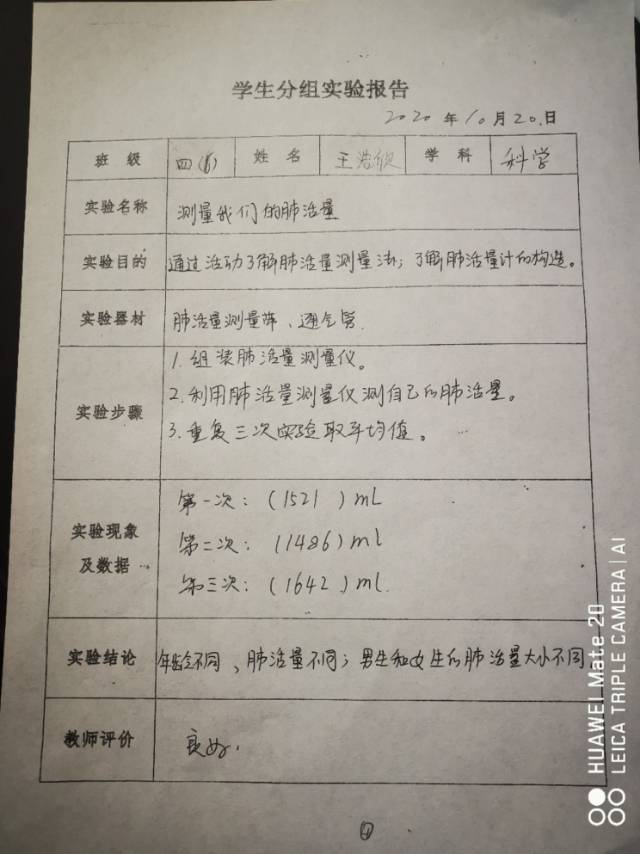 学生分组实验报告
2020年10月20日
班级 四(6) 姓名 王浩 学科 科学
实验名称 测量我们的肺活量
实验目的 通过活动了解肺活量测量法；了解肺活量计的构造。
实验器材 肺活量测量、通气管.
实验步骤
1.组装肺活量测量仪。
2.利用肺活量测量仪测自己的肺活量。
3.重复三次实验取平均值。
实验现象及数据
第一次：(1521 ) mL
第二次：(1486) mL
第三次：(1642) mL.
实验结论 年龄不同、肺活量不同；男生和女生的肺活量大小不同.
教师评价 良好.
④
HUAWEI Mate 20
LEICA TRIPLE CAMERA | AI